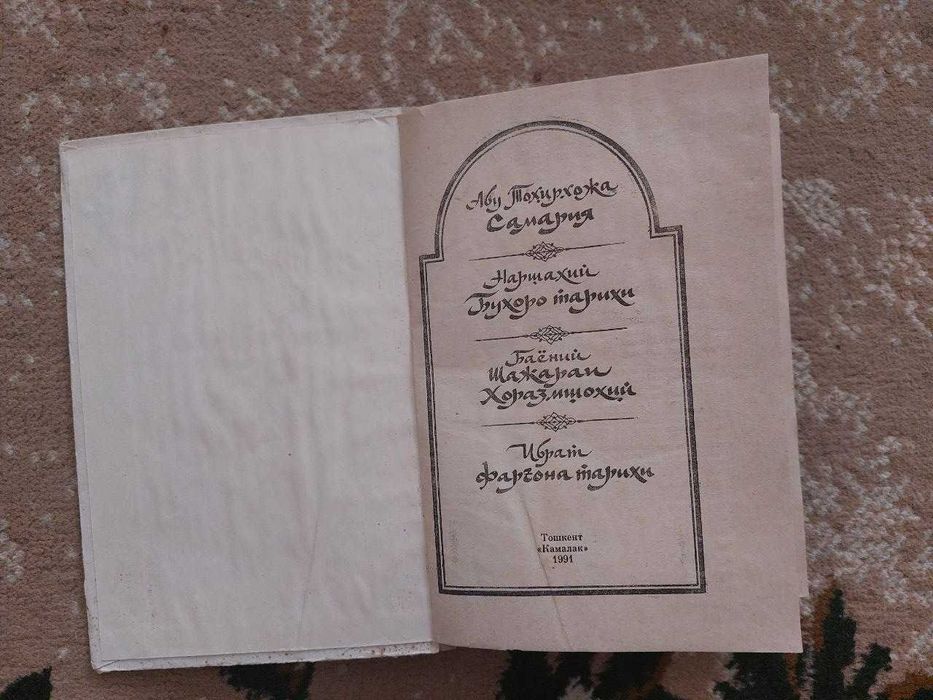 Абу Тоҳирхожа
Самария
Наршахий
Бухоро тарихи
Баёний
Шажараи
Хоразмшоҳий
Ибрат
Фарғона тарихи
Тошкент
«Камалак»
1991